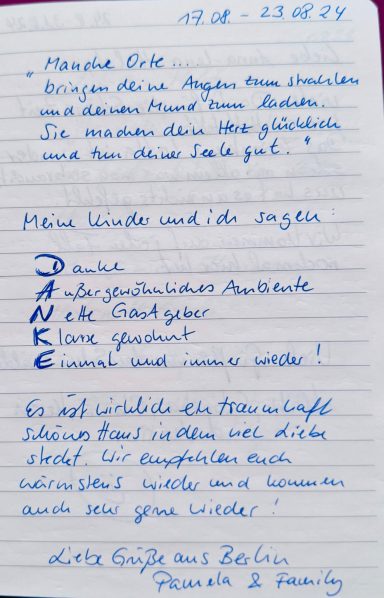 17.08. – 23.08.24
"Manche Orte...
bringen deine Augen zum strahlen
und deinen Mund zum lachen.
Sie machen dein Herz glücklich
und tun deiner Seele gut."
Meine Kinder und ich sagen:
Danke
Außergewöhnliches Ambiente
Nette Gastgeber
Klasse gewohnt
Einmal und immer wieder!
Es ist wirklich ein traumhaft
schönes Haus in dem viel Liebe
steckt. Wir empfehlen euch
wärmstens wieder und kommen
auch sehr gerne wieder!
Liebe Grüße aus Berlin
Pamela & Family